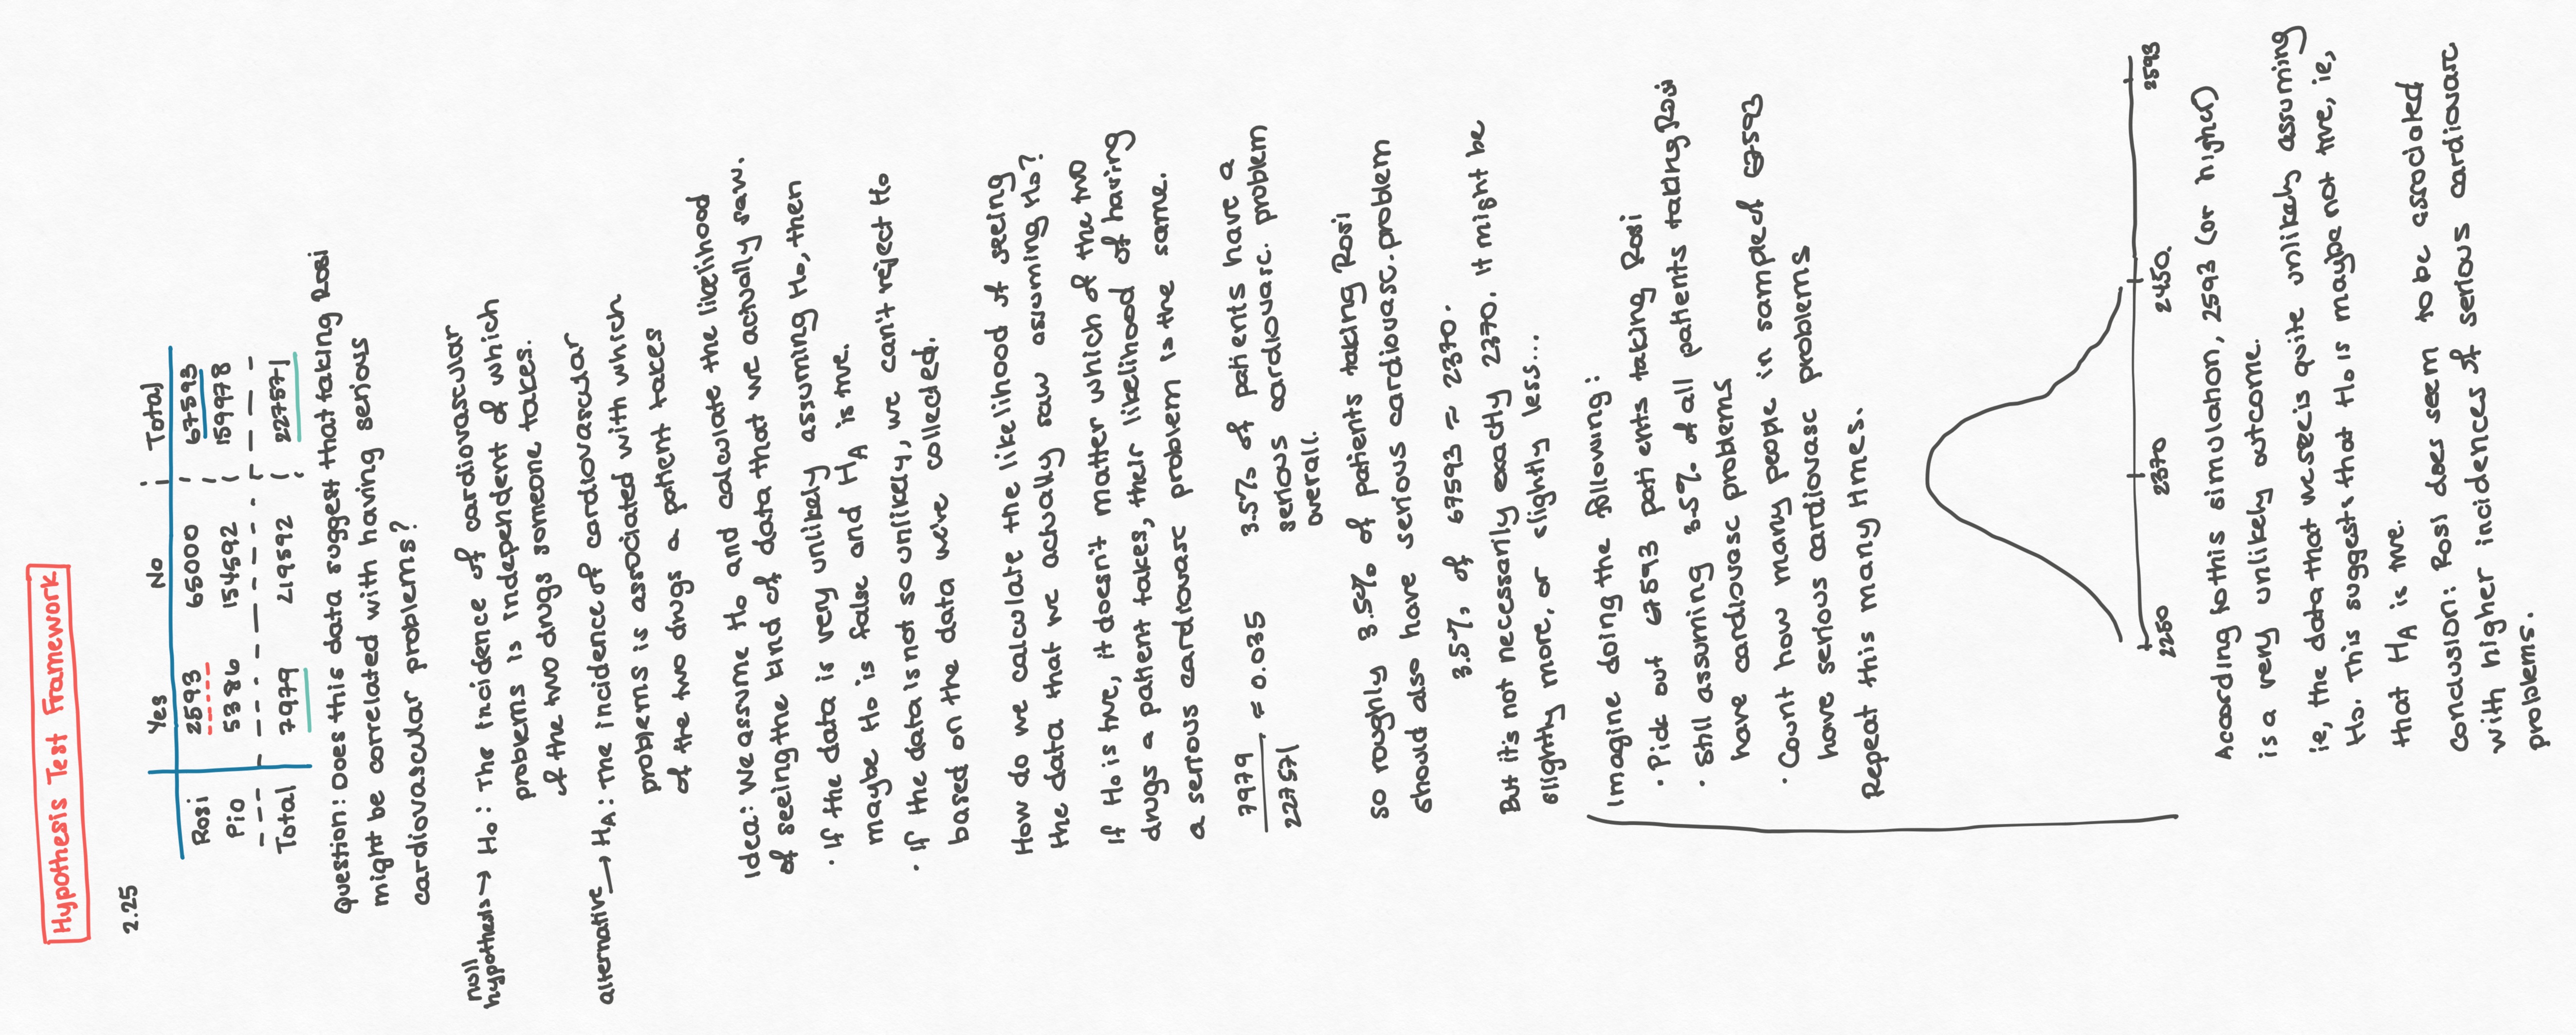 Hypothesis Test Framework
2.25
Yes No Total
Rosi 2593 65000 67593
Pio 5386 154592 159978
Total 7979 219592 227571
Question: Does this data suggest that taking Rosi
might be correlated with having serious
cardiovascular problems?
null
hypothesis → H₀: The incidence of cardiovascular
problems is independent of which
of the two drugs someone takes.
alternative → Hᴀ: The incidence of cardiovascular
problems is associated with which
of the two drugs a patient takes
Idea: We assume H₀ and calculate the likelihood
of seeing the kind of data that we actually saw.
· If the data is very unlikely assuming H₀, then
maybe H₀ is false and Hᴀ is true.
· If the data is not so unlikely, we can't reject H₀
based on the data we've collected.
How do we calculate the likelihood of seeing
the data that we actually saw assuming H₀?
If H₀ is true, it doesn't matter which of the two
drugs a patient takes, their likelihood of having
a serious cardiovasc problem is the same.
7979/227571 ≈ 0.035 3.5% of patients have a
serious cardiovasc. problem
overall.
So roughly 3.5% of patients taking Rosi
should also have serious cardiovasc. problem
3.5% of 67593 ≈ 2370.
But it's not necessarily exactly 2370. It might be
slightly more, or slightly less...
Imagine doing the following:
· Pick out 67593 patients taking Rosi
· Still assuming 3.5% of all patients taking Rosi
have cardiovasc problems
· Count how many people in sample of 67593
have serious cardiovasc problems
Repeat this many times.
2250 2370 2450. 2593
According to this simulation, 2593 (or higher)
is a very unlikely outcome.
ie, the data that we see is quite unlikely assuming
H₀. This suggests that H₀ is maybe not true, ie,
that Hᴀ is true.
Conclusion: Rosi does seem to be associated
with higher incidences of serious cardiovasc
problems.